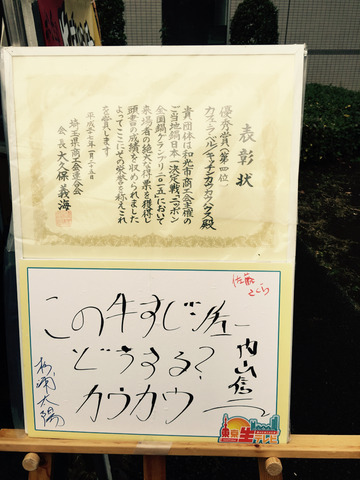 表彰状
優秀賞(第四位)
殿
貴団体は和光市商工会主催の
ご当地鍋日本一決定戦「ニッポン
全国鍋グランプリ二〇一五」において
来場者の絶大な得票を獲得し
頭書の成績を収められました
よってここにその栄誉を称えこれ
を賞します
平成二十七年一月二十五日
埼玉県商工会連合会
会長 大久保義海
佐藤
さくら
この牛すじ
どうする?
カウカウ
内山信二
杉浦太陽
東京生テレビ